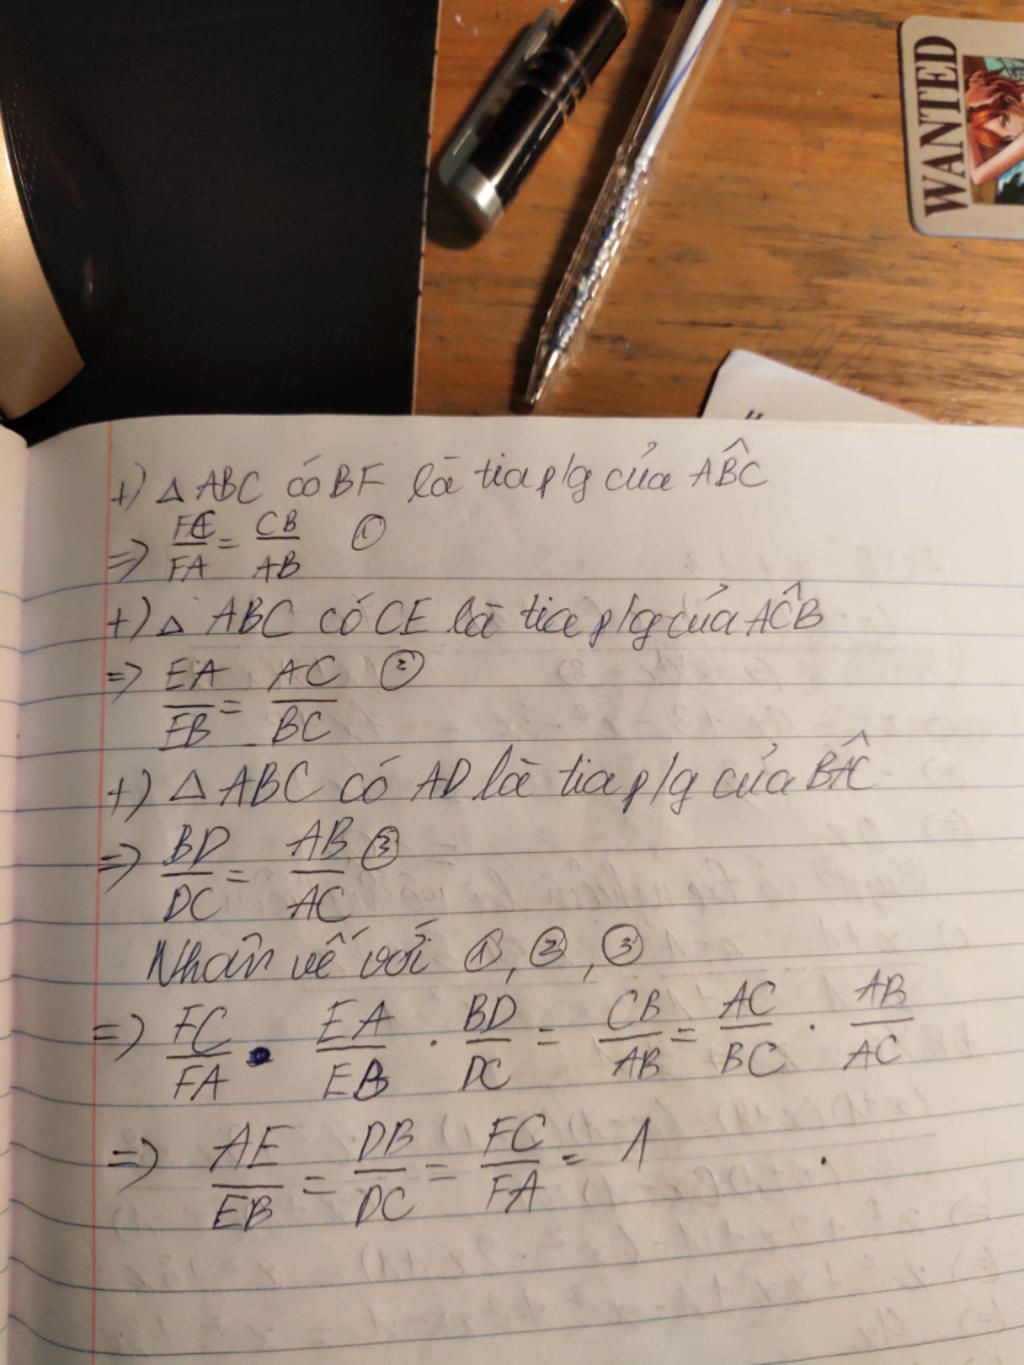 WANTED
+) △ ABC có BF là tia p/g của AB̂C
=> FC/FA = CB/AB ①
+) △ ABC có CE là tia p/g của AĈB
=> EA/EB = AC/BC ②
+) △ ABC có AD là tia p/g của BÂC
=> BD/DC = AB/AC ③
Nhân vế với ①, ②, ③
=> FC/FA . EA/EB . BD/DC = CB/AB = AC/BC . AB/AC
=> AE/EB = DB/DC = FC/FA = 1